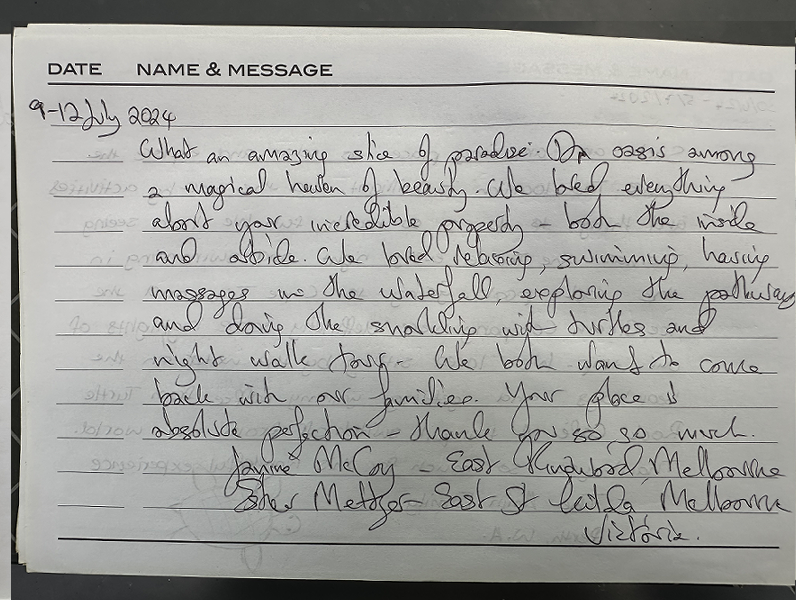 DATE NAME & MESSAGE
9-12 July 2024
What an amazing slice of paradise. An oasis among
a magical haven of beauty. We loved everything
about your incredible property - both the inside
and outside. We loved relaxing, swimming, having
massages in the waterfall, exploring the pathways
and doing the snorkling with turtles and
night walk tour - We both want to come
back with our families. Your place is
absolute perfection - thank you so so much.
Janine McCoy - East Ringwood, Melbourne
Metzger - East St Kilda, Melbourne
Victoria.